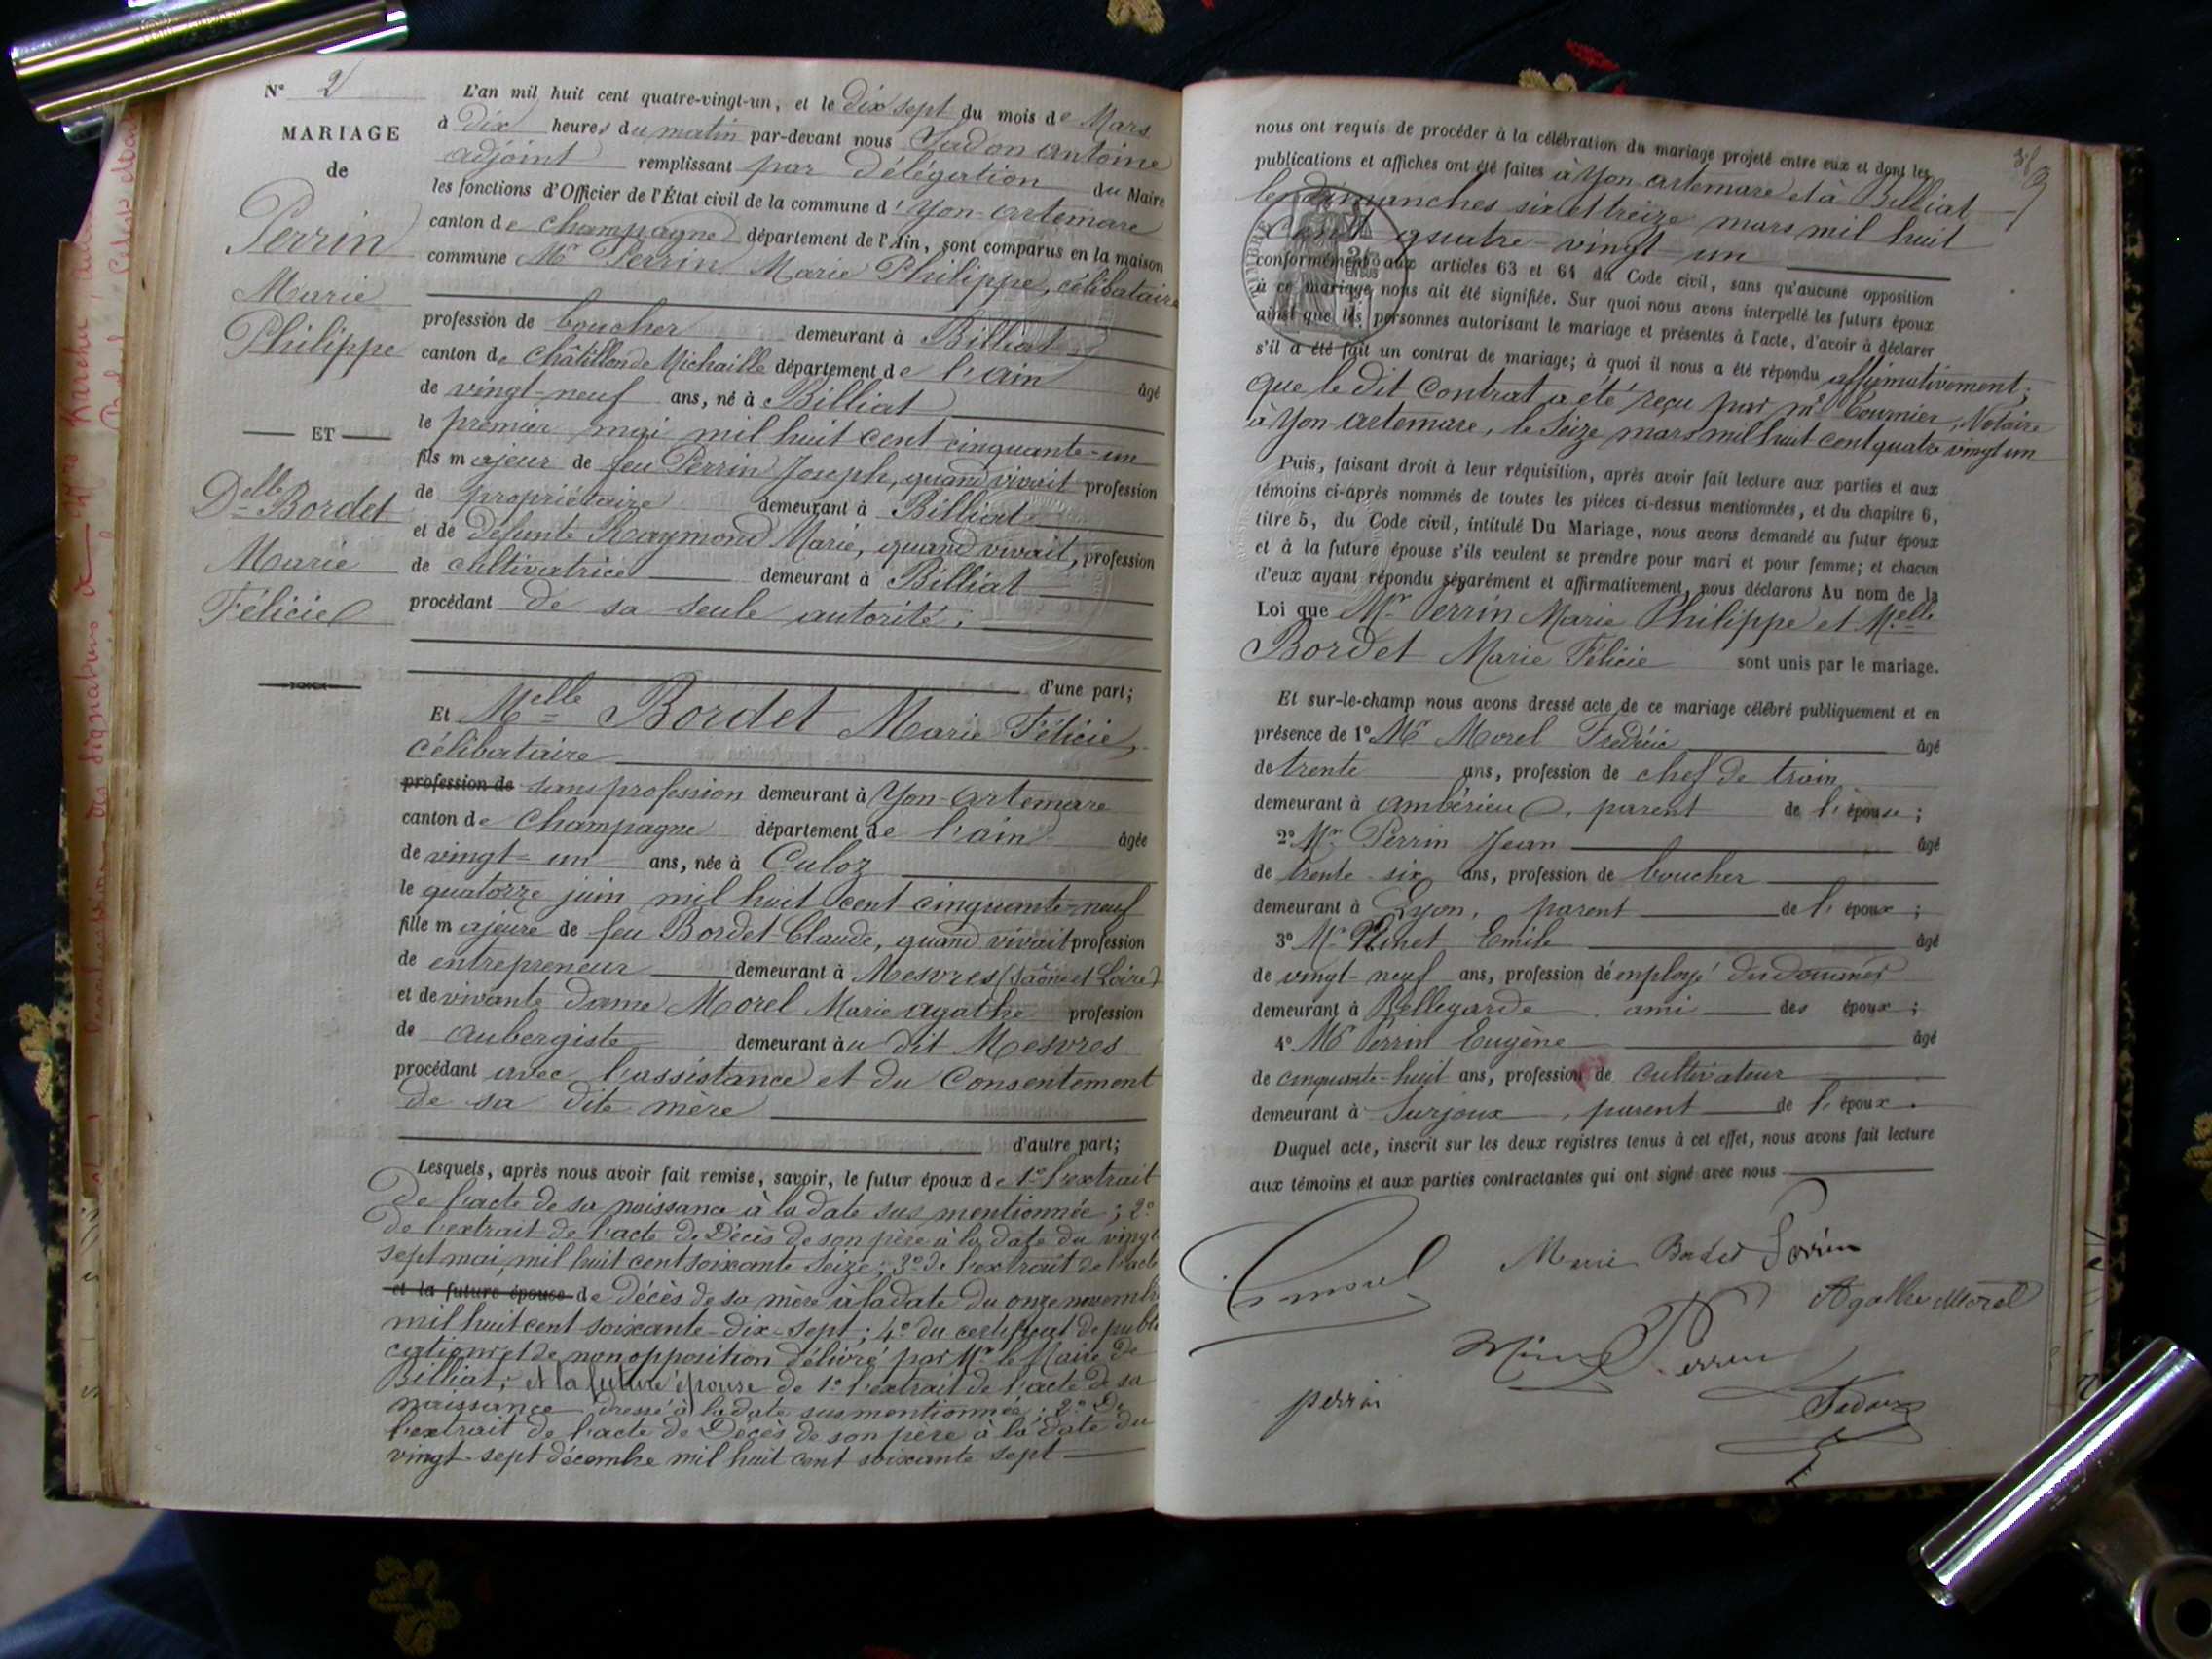 N° 2
MARIAGE
de
Perrin
Marie
Philippe
ET
Delle Bordet
Marie
Félicie
L'an mil huit cent quatre-vingt-un, et le dix sept du mois de Mars
à dix heures du matin par-devant nous Jadon antoine
adjoint remplissant par délégation du Maire
les fonctions d'Officier de l'État civil de la commune d'Yon-artemare
canton de champagne département de l'Ain, sont comparus en la maison
commune Mr Perrin Marie Philippe, célibataire
profession de boucher demeurant à Billiat
canton de Châtillon de Michaille département de l'ain âgé
de vingt-neuf ans, né à Billiat
le premier mai mil huit cent cinquante-un
fils majeur de feu Perrin Joseph, quand vivait profession
de propriétaire demeurant à Billiat
et de défunte Raymond Marie, quand vivait, profession
de cultivatrice demeurant à Billiat
procédant de sa seule autorité.
d'une part;
Et Melle Bordet Marie Félicie,
célibataire
profession de sans profession demeurant à Yon-artemare
canton de Champagne département de l'ain âgée
de vingt-un ans, née à Culoz
le quatorze juin mil huit cent cinquante-neuf
fille majeure de feu Bordet Claude, quand vivait profession
de entrepreneur demeurant à Mesvres (Saône et Loire)
et de vivante dame Morel Marie agathe profession
de aubergiste demeurant au dit Mesvres
procédant avec l'assistance et du Consentement
de sa dite mère
d'autre part;
Lesquels, après nous avoir fait remise, savoir, le futur époux de 1° l'extrait
de l'acte de sa naissance à la date sus mentionnée; 2°
de l'extrait de l'acte de Décès de son père à la date du vingt
sept mai, mil huit cent soixante seize; 3° de l'extrait de l'acte
et la future épouse de Décès de sa mère à la date du onze novembre
mil huit cent soixante-dix-sept; 4° du certificat de publi
cation et de non opposition délivré par Mr le Maire de
Billiat; et la future épouse de 1° l'extrait de l'acte de sa
naissance dressé à la date susmentionnée; 2° De
l'extrait de l'acte de Décès de son père à la date du
vingt-sept décembre mil huit cent soixante sept
nous ont requis de procéder à la célébration du mariage projeté entre eux et dont les
publications et affiches ont été faites à Yon-artemare et à Billiat
les dimanches six et treize mars mil huit
cent quatre-vingt-un
TIMBRE
conformément aux articles 63 et 64 du Code civil, sans qu'aucune opposition
à ce mariage nous ait été signifiée. Sur quoi nous avons interpellé les futurs époux
ainsi que les personnes autorisant le mariage et présentes à l'acte, d'avoir à déclarer
s'il a été fait un contrat de mariage; à quoi il nous a été répondu affirmativement;
que le dit Contrat a été reçu par me Tournier, Notaire
à Yon-artemare, le Seize mars mil huit cent quatre vingt un
Puis, faisant droit à leur réquisition, après avoir fait lecture aux parties et aux
témoins ci-après nommés de toutes les pièces ci-dessus mentionnées, et du chapitre 6,
titre 5, du Code civil, intitulé Du Mariage, nous avons demandé au futur époux
et à la future épouse s'ils veulent se prendre pour mari et pour femme; et chacun
d'eux ayant répondu séparément et affirmativement, nous déclarons Au nom de la
Loi que Mr Perrin Marie Philippe et Melle
Bordet Marie Félicie sont unis par le mariage.
Et sur-le-champ nous avons dressé acte de ce mariage célébré publiquement et en
présence de 1° Mr Morel Frédéric âgé
de trente ans, profession de chef de train
demeurant à ambérieu, parent de l'épouse;
2° Mr Perrin Jean âgé
de trente-six ans, profession de boucher
demeurant à Lyon, parent de l'époux;
3° Mr Emile âgé
de vingt-neuf ans, profession de employé
demeurant à Bellegarde ami des époux;
4° Mr Perrin Eugène âgé
de cinquante-huit ans, profession de cultivateur
demeurant à Surjoux, parent de l'époux.
Duquel acte, inscrit sur les deux registres tenus à cet effet, nous avons fait lecture
aux témoins et aux parties contractantes qui ont signé avec nous
morel Marie Bordet Perrin
Agathe Morel
Perrin
perrin